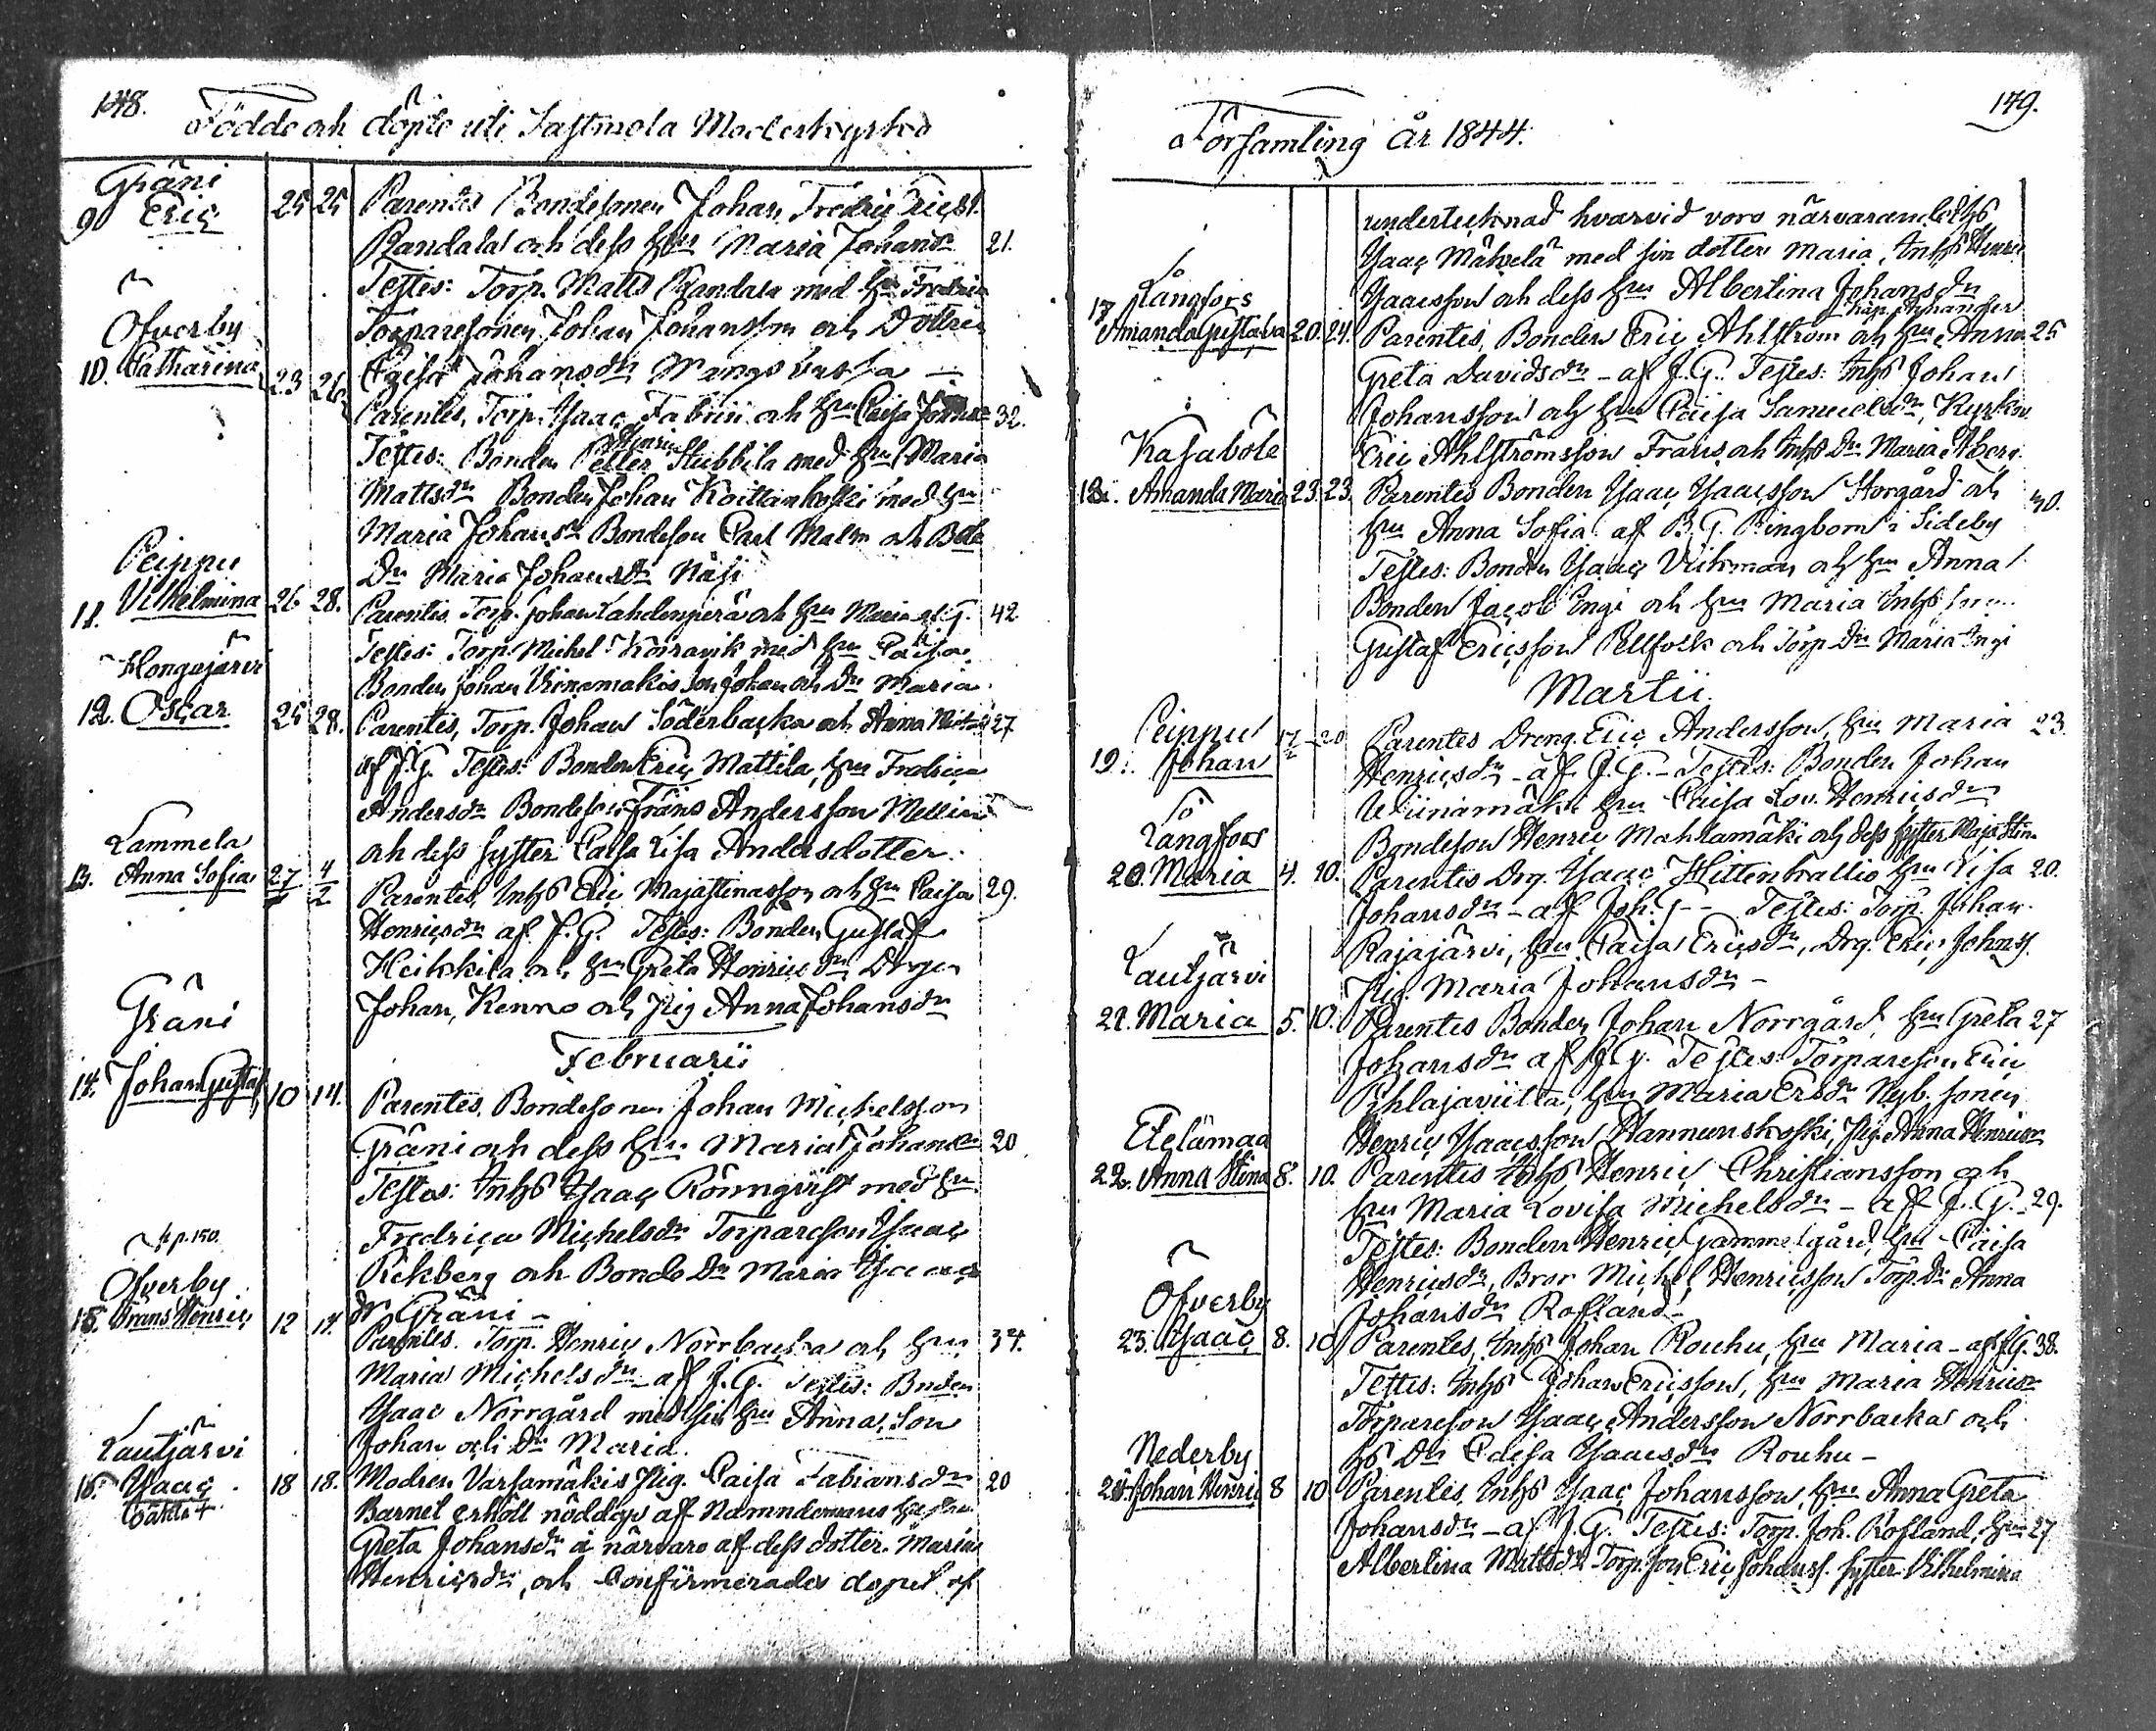 148.
Födde och döpte uti Sastmola Moderkyrko
Gräni
9 Eric 25 25 Parentes Bondesonen Johan Fredric
Randala och dess hu Maria Johansdr 21.
Testes: Torp. Matts Randala med hu Fredrica
Torparesonen Johan Johansson och Dottren
Öfverby
10. Catharina 23 26 Cajsa Johansdr
Parentes, Torp. Ysaac Fabrin och hu Caisa 32.
Testes: Bonden Petter Stubbila med hu Maria
Mattsdr Bonden Johan med hu
Maria Johansdr Bondeson Carl Malm och Bde
Dr Maria Johansdr Näsi
Peippu
11. Vilhelmina 26 28. Parentes. Torp. Johan Lahdenperä och hu Maria af G. 42
Testes: Torp. Michel med hu Caisa
Bonden Johan Viinamäkis son Johan och Dr Maria
Hongujärvi
12. Oscar 25 28. Parentes, Torp. Johan Söderbacka och Anna 27
af J.G. Testes: Bonden Eric Mattila, hu Fredrica
Andersdr Bondeson Frans Andersson Mellin
och dess syster Caisa Lisa Andersdotter.
Lammela
13. Anna Sofia 27/1 4/2 Parentes, Inhs Eric Majastinasson och hu Caisa 29.
Henricsdr af J.G. Testes: Bonden Gustaf
Heikkila och hu Greta Henricsdr Drgn
Johan Kenno och Pig Anna Johansdr
Gräni
Februarii
14. Johan Gustaf 10 14. Parentes. Bondesonen Johan Michelsson
Gräni och dess hu Maria Johansdr 20
Testes: Inhs Ysaac Rönnqvist med hu
Fredrica Michelsdr Torpareson Ysaac
Rekberg och Bonde Dr Maria Ysaacs
dr Gräni -
p. 150.
Öfverby
15. Frans Henric 12 14. Parentes. Torp. Henric Norrbacka och hu 34.
Maria Michelsdr - af J.G. Testes: Bonden
Ysaac Norrgård med sin hu Anna, Son
Johan och Dr Maria.
Lautjärvi
16. Ysaac 18 18. Modren Varsamäkis Pig. Caisa Fabiansdr 20
Oäkta +
Barnet erhöll nöddop af Nämndemans hustru
Greta Johansdr i närvaro af dess dotter Maria
Henricsdr, och Confirmerades dopet af
149.
Församling År 1844.
undertecknad hvarvid voro närvarande Inhs
Ysaac Mäkelä med sin dotter Maria, Inhs Henric
Långfors
Ysaacsson och dess hu Albertina Johansdr
17 Amanda Gustava 20. 24. Parentes, Bonden Eric Ahlström och hu Anna 25
Greta Davidsdr - af J.G. Testes: Inhs Johan
Johansson och hu Caisa Samuelsdr,
Kasaböle
Eric Ahlströmsson Frans och Inhs Dr Maria Åberg
18. Amanda Maria 23. 23. Parentes Bonden Ysaac Ysaacsson Storgård och 40.
hu Anna Sofia af B.G. Ringbom i Sideby
Testes: Bonden Ysaac Vickman och hu Anna
Bonden Jacob Ingi och hu Maria Inhs
Gustaf Ericsson Pellfolk och Torp Dr Maria Ingi
Martii
Peippu
19. Johan 17/2 20 Parentes Dreng. Eric Andersson, hu Maria 23
Henricsdr - af J.G. - Testes: Bonden Johan
Wiinamäki hu Caisa Lov. Henricsdr
Långfors
Bondeson Henric Mahlamäki och dess syster Maja Stina
20. Maria 4. 10. Parentes Drg. Ysaac Hittenkallio hu Lisa 20.
Johansdr - af Joh. G - Testes: Torp. Johan
Lautjärvi
Rajajärvi, hu Caisa Ericsdr, Drg. Eric Johanss.
Pig. Maria Johansdr -
21. Maria 5. 10. Parentes Bonden Johan Norrgård, hu Greta 27
Johansdr af J.G. Testes: Torpareson Eric
Pihlajaviita, hu Maria Ersdr Nyb. sonen
Etelämaa
Henric Ysaacsson Hannunskoski, Pig. Anna Henricsdr
22. Anna Stina 8. 10. Parentes Inhs Henric Christiansson och
hu Maria Lovisa Michelsdr - af J.G. 29.
Testes: Bonden Henric Gammelgård, hu Caisa
Öfverby
Henricsdr, Bror Michel Henricsson Torp. Dr Anna
Johansdr Rosland -
23. Ysaac 8. 10 Parentes, Inhs Johan Rouhu, hu Maria - af J.G. 38.
Testes: Inhs Johan Ericsson, hu Maria Henricsdr
Torpareson Ysaac Andersson Norrbacka och
Nederby
Hs Dr Caisa Ysaacsdr Rouhu -
24. Johan Henric 8 10 Parentes, Inhs Ysaac Johansson, hu Anna Greta
Johansdr - af J.G. Testes: Torp. Joh. Rosland, hu 27
Albertina Mattsdr Torp. son Eric Johanss. syster Vilhelmina